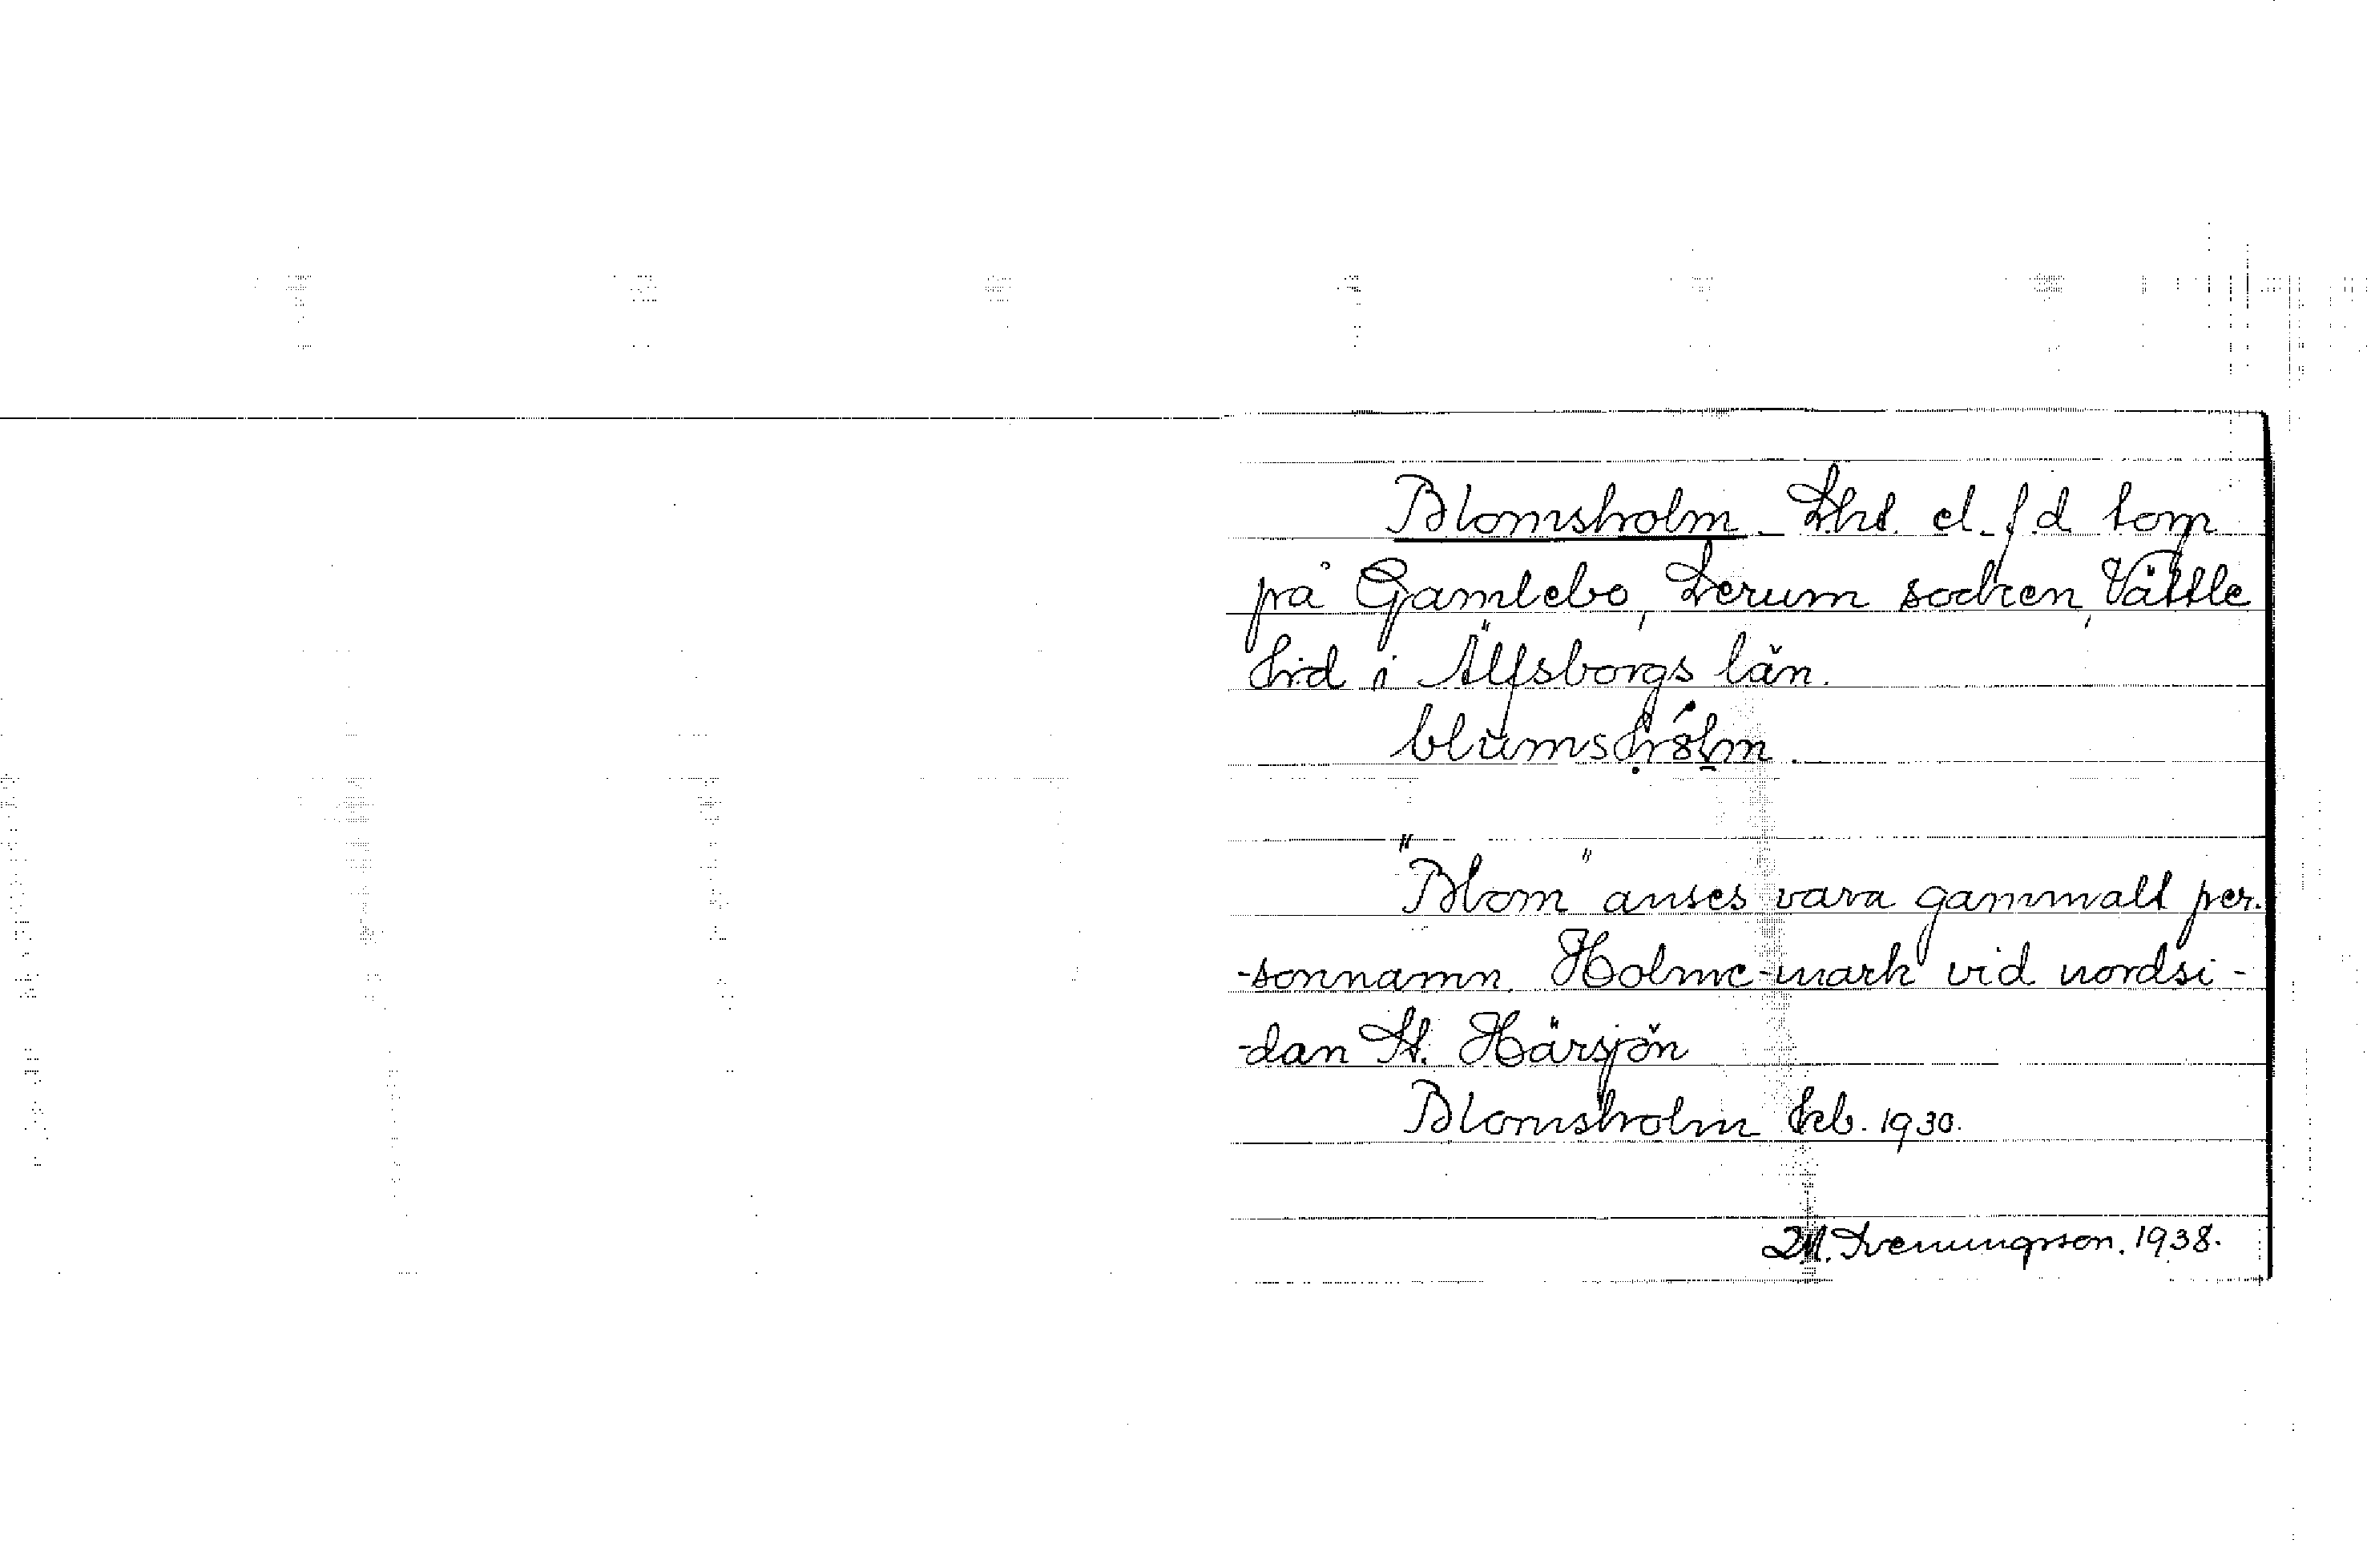 Blomsholm. Lht. el. f.d torp
på Gamlebo, Lerum socken, Vättle
hrd i Älfsborgs län.
"Blom" anses vara gammalt per-
-sonnamn. Holme-mark vid nordsi-
-dan St. Härsjön
Blomsholm kb. 1930.
Sveningsson. 1938.